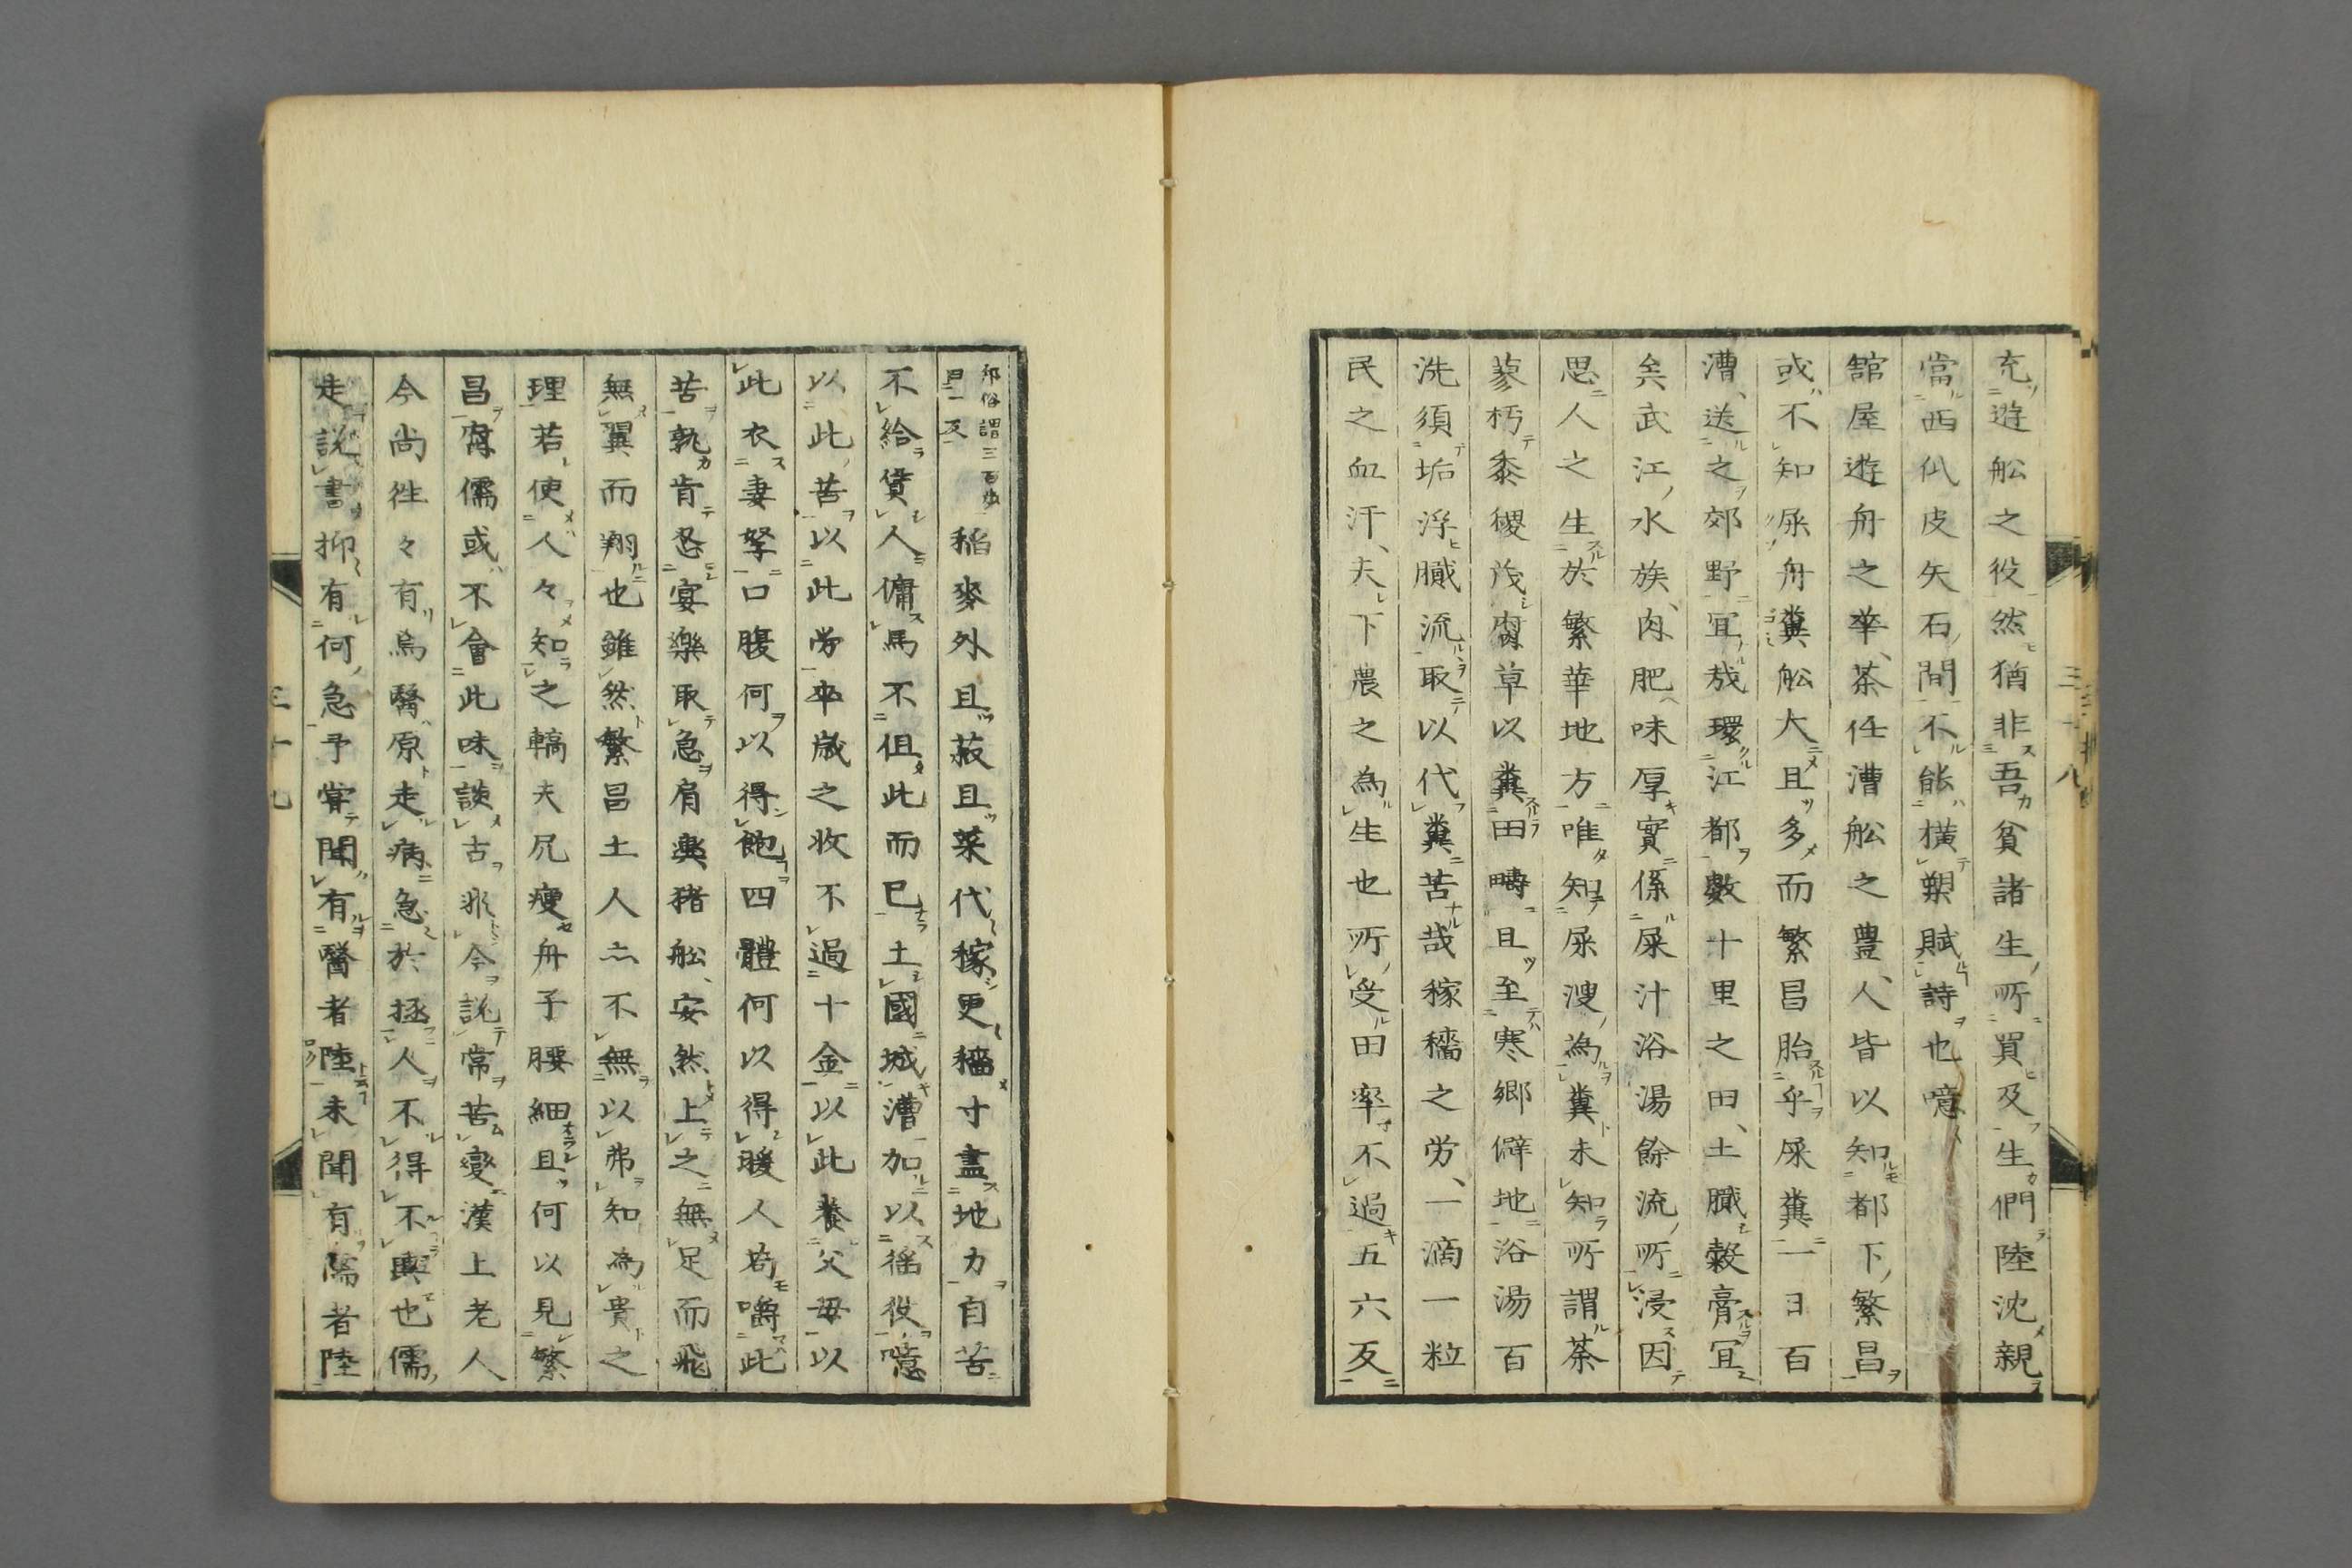 充遊舩之役然猶非吾貧諸生所買及生們陸沈親
當西仏皮矢石間不能橫槊賦詩也噫
舘屋遊舟之華、茶任漕舩之豊、人皆以知都下繁昌
或不知屎舟糞舩大且多而繁昌胎乎屎糞一日百
漕、送之郊野宜哉環江都數十里之田、土膱穀膏宜
矣武江水族、肉肥味厚實係屎汁浴湯餘流所浸因
思人之生於繁華地方唯知屎溲為糞未知所謂茶
蓼朽黍稷茂腐草以糞田疇且至寒鄉僻地浴湯百
洗須垢浮膱流取以代糞苦哉稼穡之労、一滴一粒
民之血汗、夫下農之為生也所受田率不過五六反
邦俗謂三百歩
曰一反
稲麥外且菽且菜代稼更穡寸盡地力自苦
不給賃人傭馬不但此而已土國城漕加以徭役噫
以此苦以此労卒歲之收不過十金以此養父母以
此衣妻孥口腹何以得飽四體何以得暖人若嚼此
苦孰肯忍宴樂取急肩輿猪舩、安然上之無足而飛
無翼而翔也雖然繁昌土人亠不無以弗知為貴之
理若使人々知之轎夫尻瘦舟子腰細且何以見繁
昌腐儒或不會此味談古非今說常苦變漢上老人
今尚徃々有焉醫原走病急於拯人不得不輿也儒
走說書抑有何急予嘗聞有醫者陸未聞有儒者陸
三十八
三十九